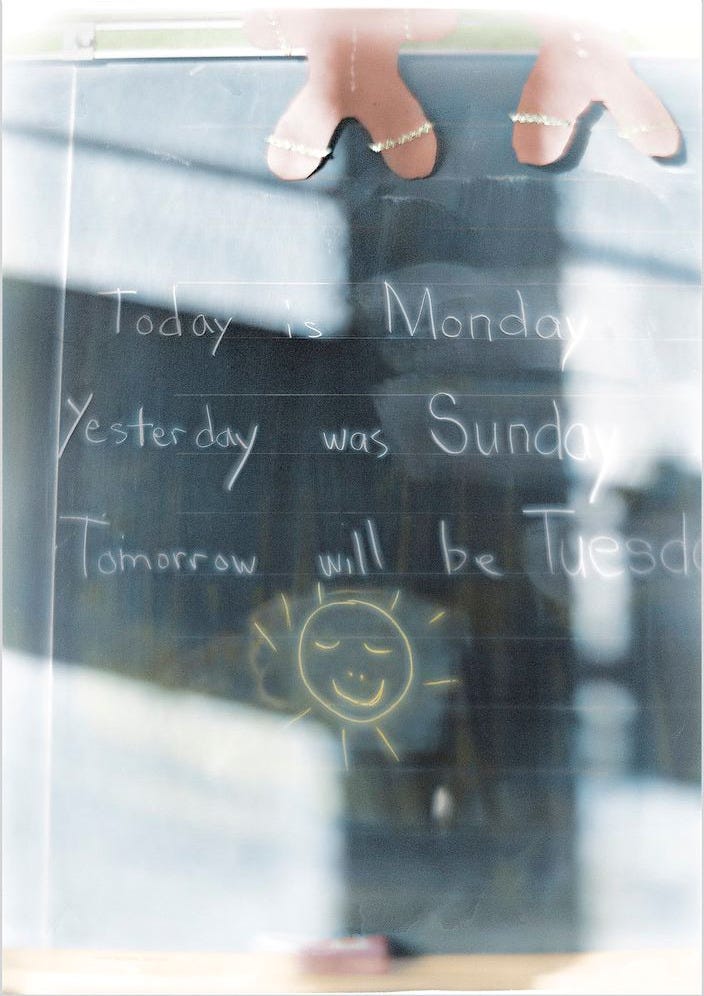 Today is Monday
Yesterday was Sunday
Tomorrow will be Tuesda